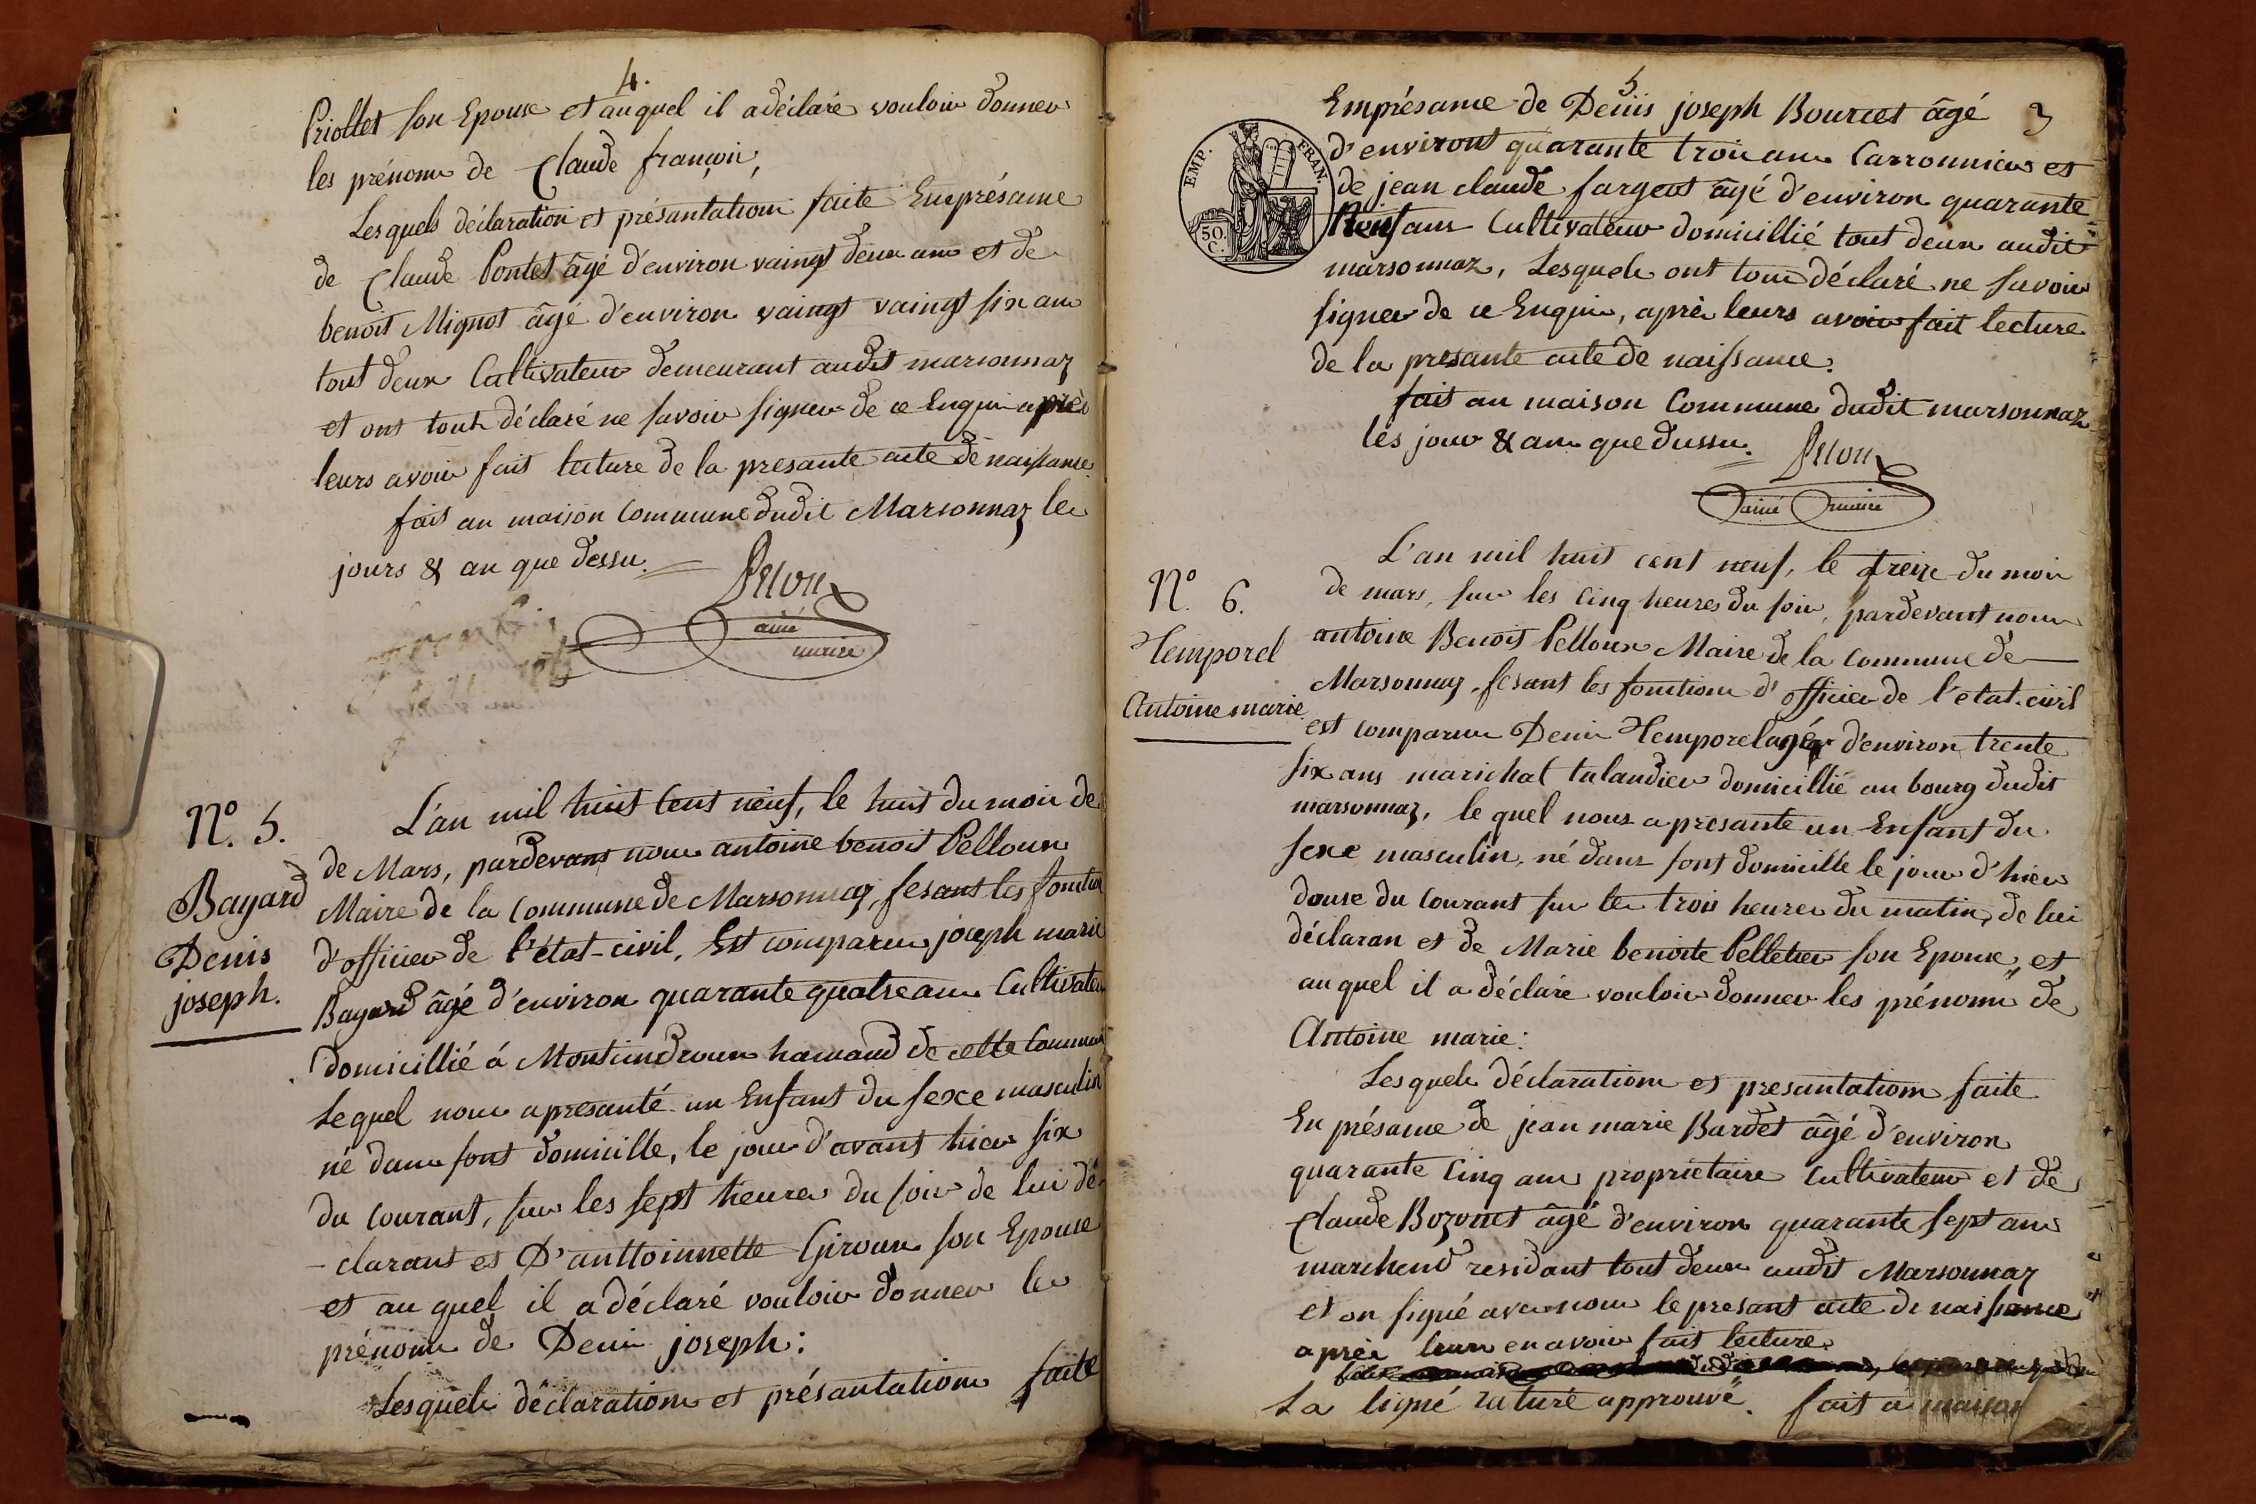 4.
Priollet son Epouse et auquel il a déclaré vouloir donner
les prénoms de Claude françois,
Lesquels déclaration et présantation faite Emprésame
de Claude Pontet âgé d'environ vaingt deux ans et de
benoit Mignot âgé d'environ vaingt vaingt six ans
tout deux Cultivateur demeurant audit marsonnaz
et ons tout déclaré ne savoir signer de ce Enquis après
leurs avoir fait lecture de la presante acte de naissance
fais au maison Commune dudit Marsonnaz les
jours & an que dessu.
ainé
maire
N.º 5.
Bayard
Denis
joseph.
L'an mil huit Cent neuf, le huit du mois de
de Mars, pardevant nous antoine benoit Pelloux
Maire de la Commune de Marsonnaz, fesant les fonction
d'officier de l'état-civil, Est comparu joseph marie
Bayard âgé d'environ quarante quatre ans Cultivateur
domicillié á hamaud de cette Commune
Lequel nous a presanté un Enfant du sexe masculin
né dans sont domicille, le jour d'avant hier six
du Courant, sur les sept heures du soir de lui dé
-clarant et D'anttoinnette Giroux son Epouse
et au quel il a déclaré vouloir donner les
prénoms de Denis joseph:
Lesquels déclarations et présantations faite
5
3
Emprésame de Denis joseph Bourcet âgé
d'environt quarante trois ans Carronnier et
de jean claude fargeot âgé d'environ quarante
ans Cultivateur domicillié tout deux audit
marsonnaz, Lesquels ont tous déclaré ne savoir
signer de ce Enquis, après leurs avoir fait lecture
de la presante acte de naissance.
fait au maison Commune dudit marsonnaz
les jour & an que dussu.
ainé maire
EMP. FRAN.
50. C.
N.º 6.
Temporel
Antoine marie
L'an mil huit cent neuf, le treize du mois
de mars, sur les Cinq heures du soir, pardevant nous
antoine Benoit Pelloux Maire de la Commune de
Marsonnaz, fesant les fonctions d'officier de l'etat-civil
est comparu Denis Temporel agé d'environ trente
six ans marichal talandier domicillié au bourg dudit
marsonnaz, le quel nous a presante un Enfant du
sexe masculin, né dans sont domicille le jour d'hier
douse du Courant sur les trois heures du matin, de lui
déclaran et de Marie benoite Pelletier son Epouse, et
au quel il a déclaré vouloir donner les prénoms de
Antoine marie:
Lesquels déclarations et presantations faite
En présame de jean marie Bardet âgé d'environ
quarante Cinq ans propriétaire Cultivateur et de
Claude Bozonet âgé d'environ quarante sept ans
marchend residant tout deux audit Marsonnaz
et on signé avec nous le presant acte de naissance
après leurs en avoir fait lecture
La ligné raturé approuvé. fait a maison